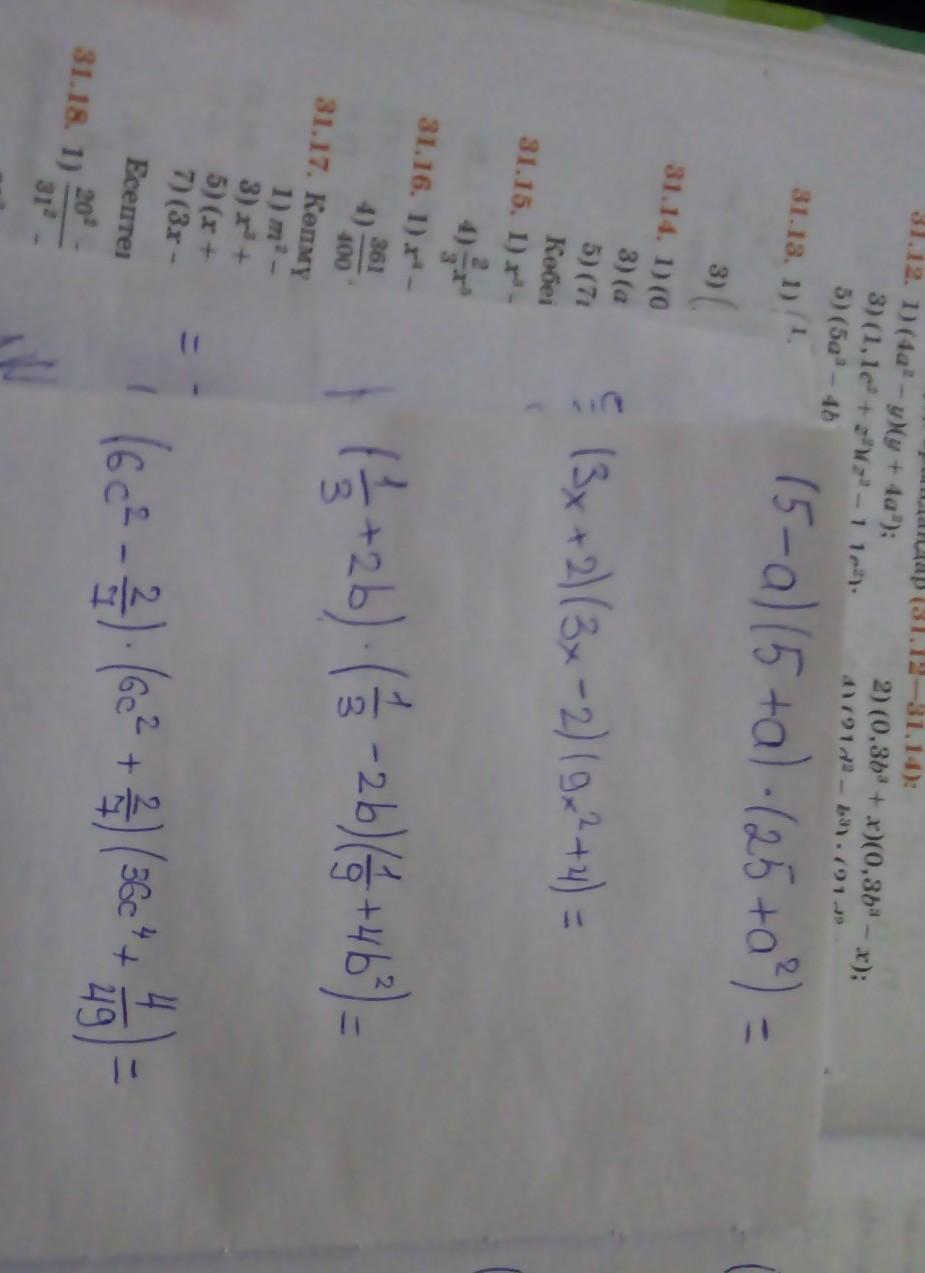 31.12. 1) (4a² – y)(y + 4a²); 2) (0,3b³ + x)(0,3b³ – x);
3) (1,1c² + z³)(z³ – 1,1c²);
5) (5a³ – 4b
31.13. 1) (
3) (
31.14. 1) (0
3) (a
5) (7
31.15. 1) x⁴ -
4) 2/3 x³
31.16. 1) x⁴ –
4) 361/400
31.17. Көпмү
1) m² –
3) x² +
5) (x +
7) (3x –
31.18. 1) 20² - / 31² -
(5-a)(5+a)·(25+a²) =
(3x+2)(3x-2)(9x²+4) =
(1/3+2b)·(1/3-2b)(1/9+4b²) =
=
(6c²-2/7)·(6c²+2/7)(36c⁴+4/49) =